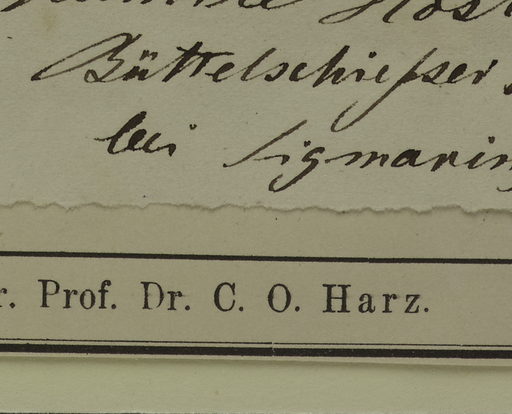 Büttelschießer
bei Sigmarin
r. Prof. Dr. C. O. Harz.